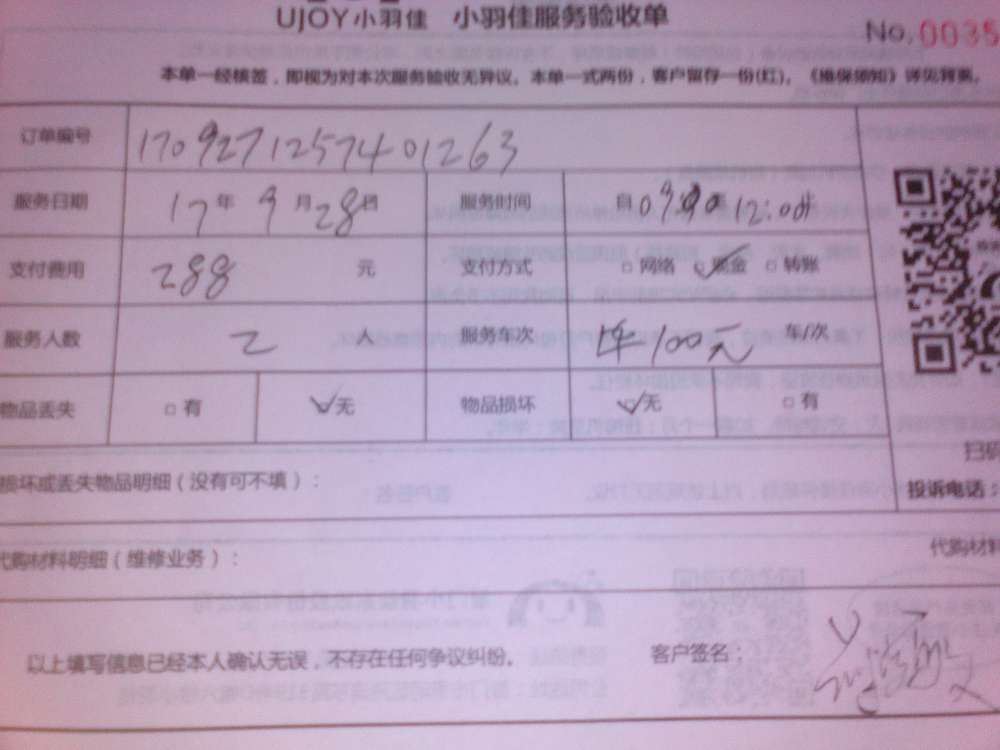 UJOY小羽佳 小羽佳服务验收单
No. 0035
本单一经核签，即视为对本次服务验收无异议。本单一式两份，客户留存一份(红)。《维保须知》详见背票。
订单编号 1709271257401263
服务日期 17年9月28日 服务时间 自 12:00
支付费用 288 元 支付方式 □网络 □现金 □转账
服务人数 2 人 服务车次 车100元 车/次
物品丢失 □有 □无 物品损坏 □无 □有
扫码
损坏或丢失物品明细（没有可不填）：
投诉电话：
代购材料明细（维修业务）： 代购材料
以上填写信息已经本人确认无误，不存在任何争议纠纷。 客户签名：